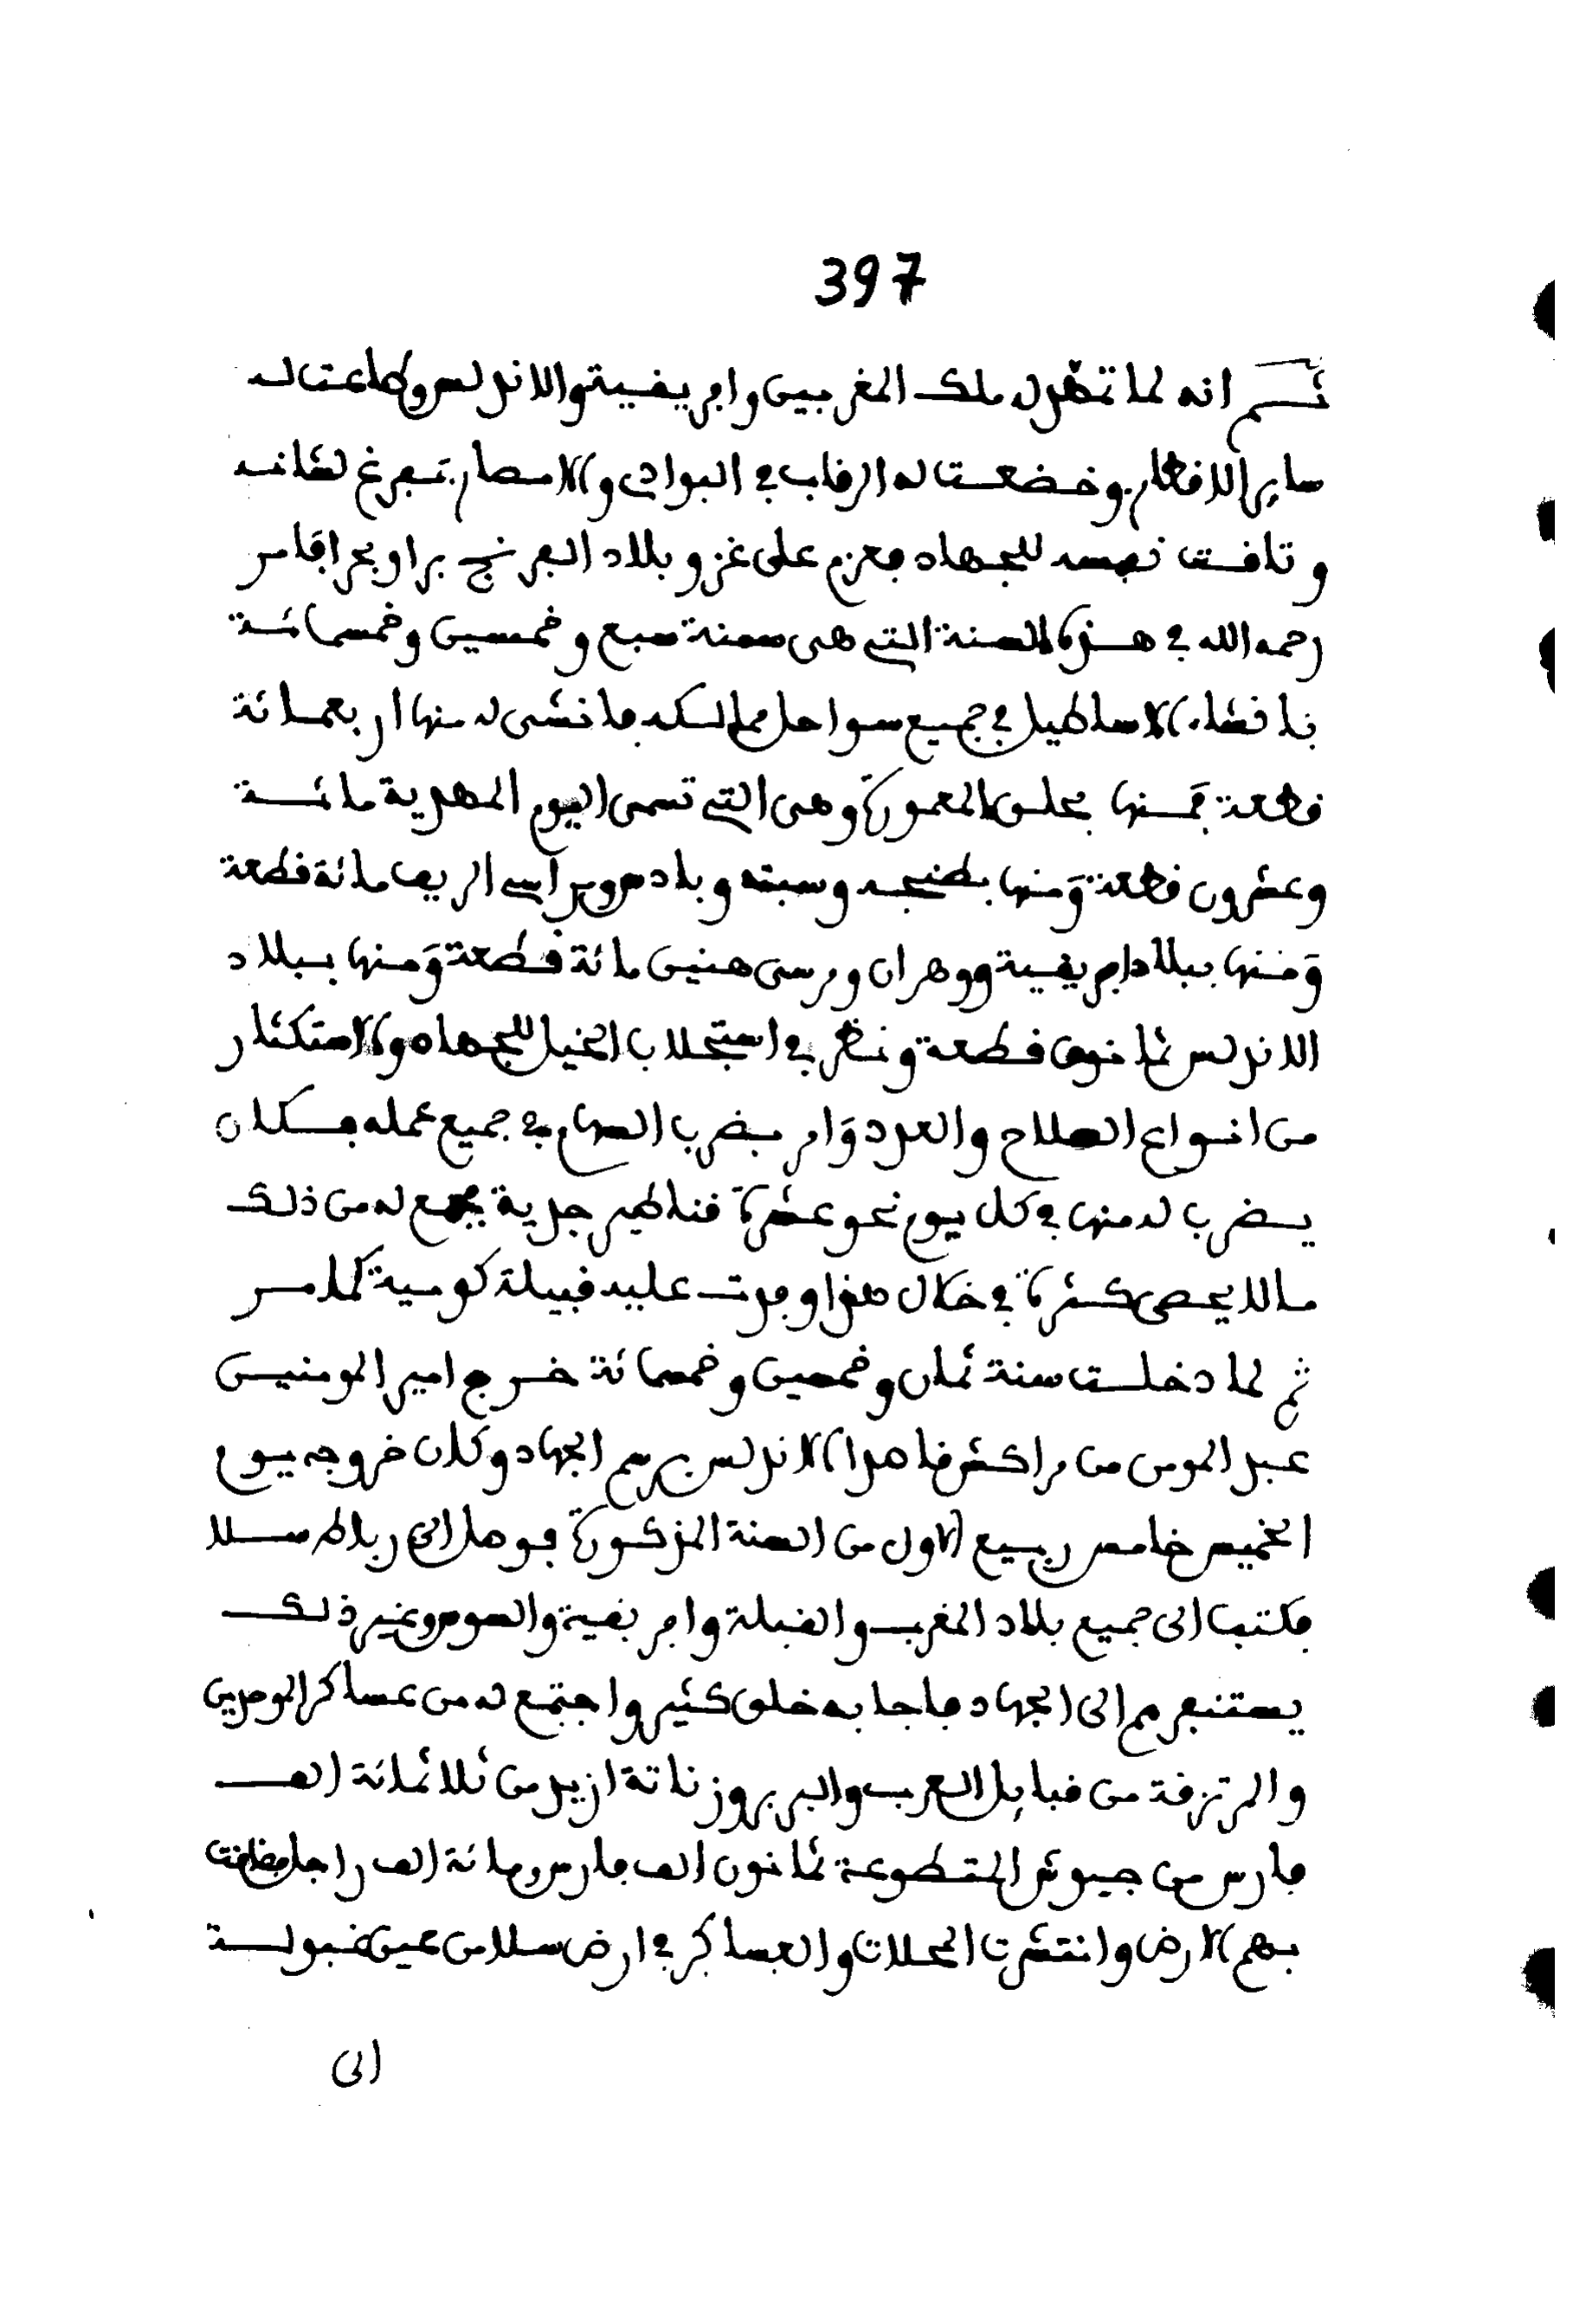 397
ثم انه لما تمهد له ملك المغربين وافريقية والاندلس وطاعت له
ساير الاقطار وخضعت له الرقاب في البوادي والامصار تفرغ لشانه
وتاقت نفسه للجهاد فعزم على غزو بلاد الفرنج برا وبحرا فامر
رحمه الله في هذه السنة التي هي سنة سبع وخمسين وخمسمائة
بانشاء الاساطيل في جميع سواحل ممالكه فانشى له منها اربعمائة
قطعة فمنها بحلق المعمورة وهي التي تسمى اليوم المهدية مائة
وعشرون قطعة ومنها بطنجه وسبته وبادس ومراسي الريف مائة قطعة
ومنها ببلاد افريقية ووهران ومرسى هنين مائة قطعة ومنها ببلاد
الاندلس ثمانون قطعة ونظر في استجلاب الخيل للجهاد والاستكثار
من انواع السلاح والعدد وامر بضرب السهام في جميع عمله فكان
يضرب له منها في كل يوم نحو عشرة قناطير جدية فجمع له من ذلك
ما لا يحصى كثرة في خلال هذا وفدت عليه قبيلة كومية كما مر
ثم لما دخلت سنة ثمان وخمسين وخمسمائة خرج امير المومنين
عبد المومن من مراكش قاصدا الاندلس برسم الجهاد وكان خروجه يوم
الخميس خامس ربيع الاول من السنة المذكورة فوصل الى رباط سلا
فكتب الى جميع بلاد المغرب والقبلة وافريقية والسوس وغير ذلك
يستنفرهم الى الجهاد فاجابه خلق كثير واجتمع له من عساكر الموحدين
والمرتزقة من قبايل العرب والبربر وزناتة ازيد من ثلاثمائة الف
فارس من جيوش المتطوعة ثمانون الف فارس ومائة الف راجل فضاقت
بهم الارض وانتشرت المحلات والعساكر في ارض سلا من عين غبولة
الى